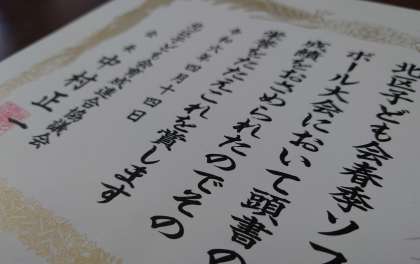 北区子ども会春季ソフ
ボール大会において頭書の
成績をおさめられたのでその
栄誉をたたえこれを賞します
令和六年四月十四日
北区子ども会育成連合協議会
会長 中村正一